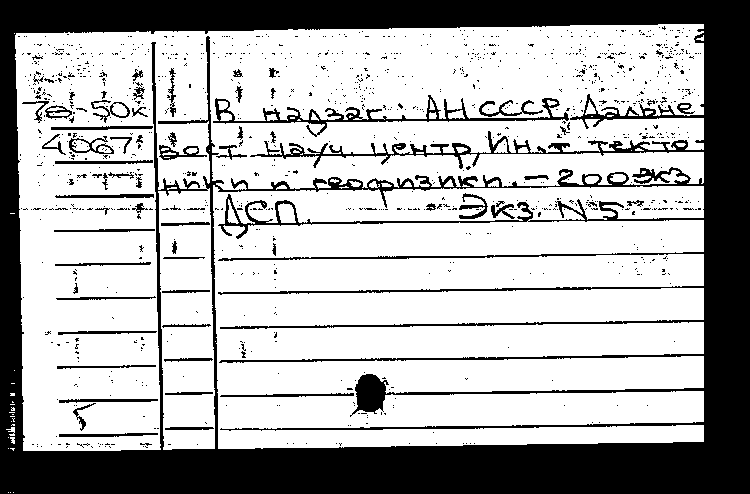 2
7а-50к В надзаг.: АН СССР, Дальне-
4067 вост. науч. центр, Ин-т текто-
ники и геофизики. – 200 экз.
ДСП. Экз. N 5.